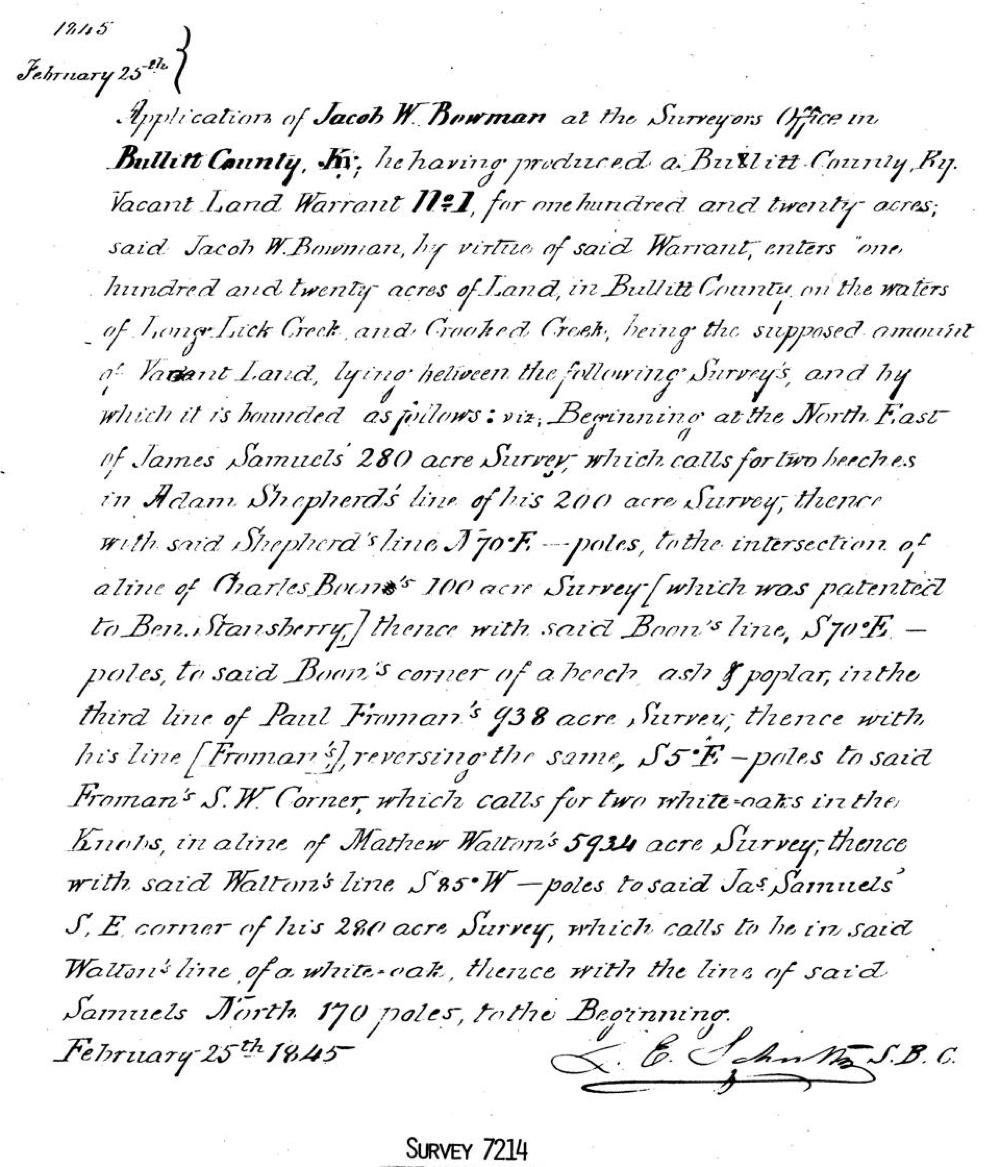 1845
February 25th
Application of Jacob W. Bowman at the Surveyors Office in
Bullitt County, Ky; he having produced a Bullitt County, Ky.
Vacant Land Warrant No. 1, for one hundred and twenty acres;
said Jacob W. Bowman, by virtue of said Warrant, enters "one
hundred and twenty acres of Land, in Bullitt County, on the waters
of Long Lick Creek and Crooked Creek, being the supposed amount
of Vacant Land, lying between the following Survey's, and by
which it is bounded as follows: viz; Beginning at the North East
of James Samuels' 280 acre Survey, which calls for two beeches
in Adam Shepherd's line of his 200 acre Survey, thence
with said Shepherd's line N70°E — poles, to the intersection of
a line of Charles Boon's 100 acre Survey [which was patented
to Ben. Stansberry,] thence with said Boon's line, S70°E —
poles, to said Boon's corner of a beech ash & poplar, in the
third line of Paul Froman's 938 acre Survey, thence with
his line [Froman's], reversing the same, S5°E — poles to said
Froman's S.W. Corner, which calls for two white-oaks in the
Knobs, in a line of Mathew Walton's 5924 acre Survey, thence
with said Walton's line S85°W — poles to said Jas. Samuels'
S.E. corner of his 280 acre Survey, which calls to be in said
Walton's line, of a white-oak, thence with the line of said
Samuels North 170 poles, to the Beginning.
February 25th 1845
S.B.C.
SURVEY 7214